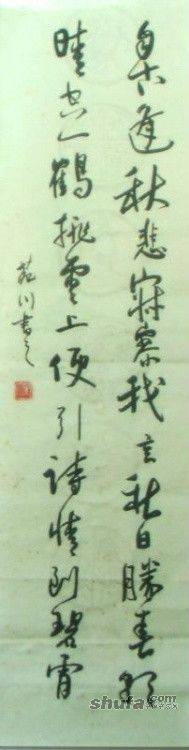 自古逢秋悲寂寥我言秋日勝春朝
晴空一鶴排雲上便引詩情到碧霄
川书之
shufa.com